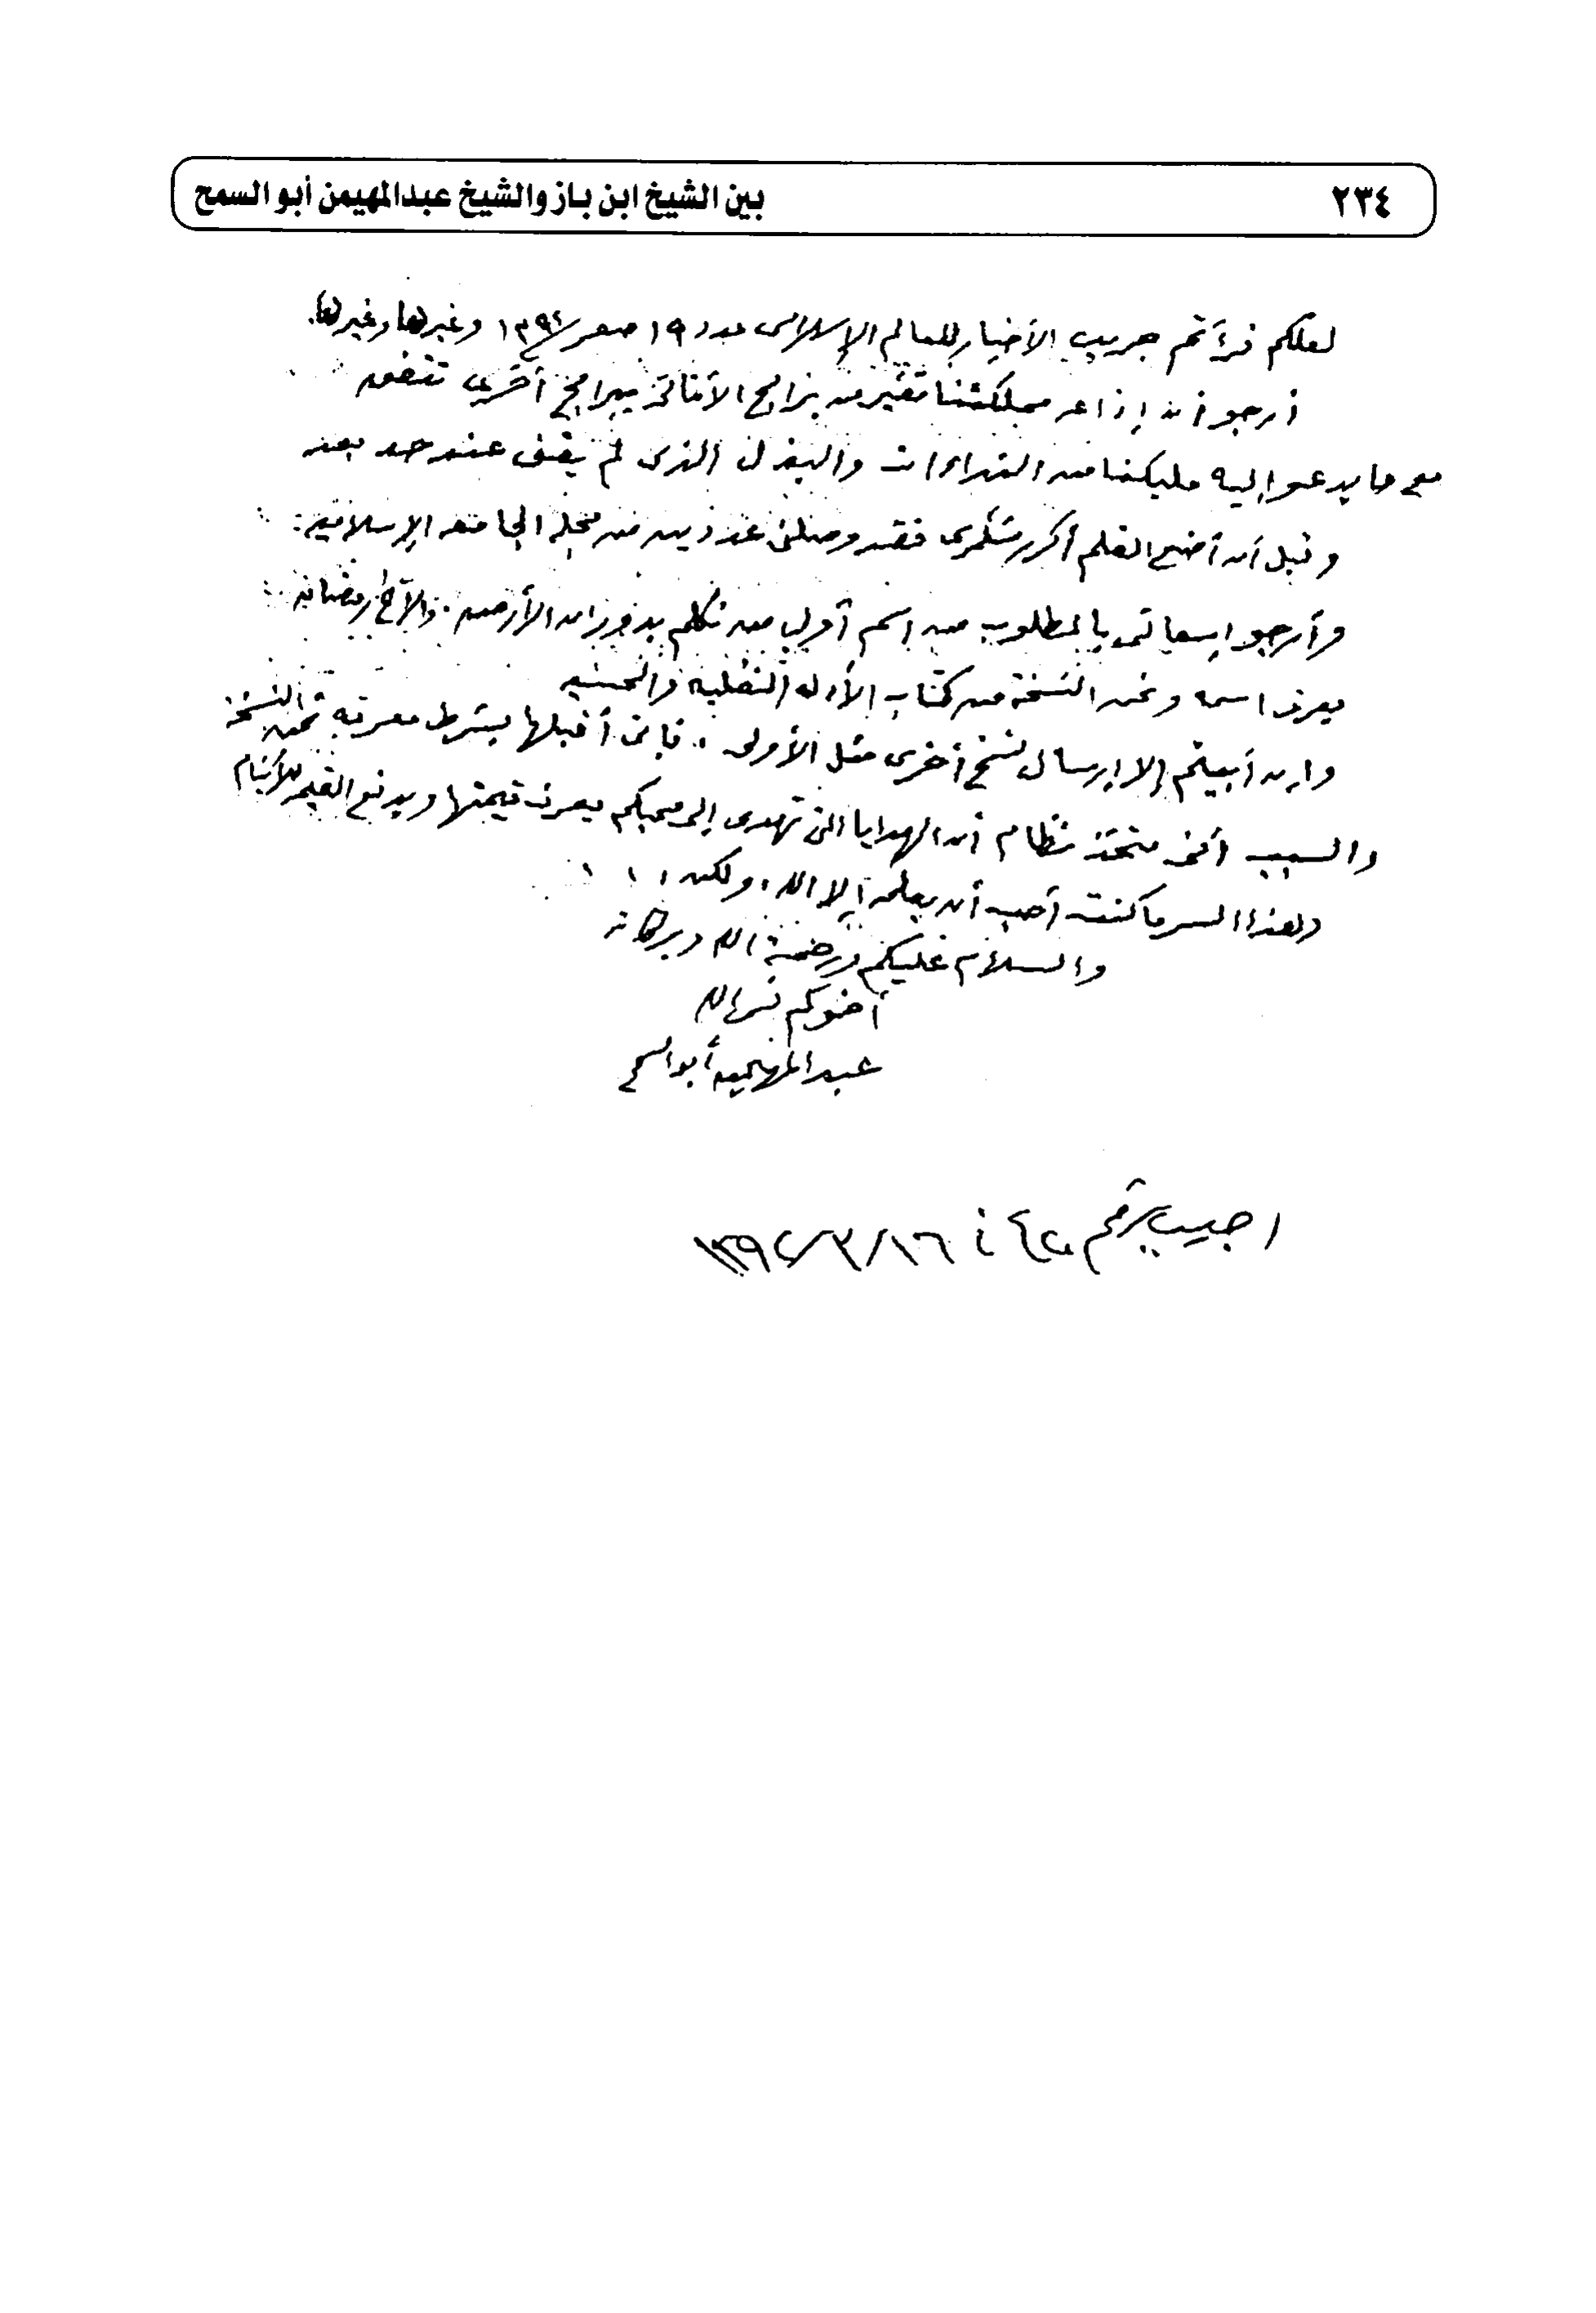 ٢٣٤
بين الشيخ ابن باز والشيخ عبدالمهيمن أبو السمح
لعلكم قرأتم الأخبار للعالم الإسلامى عدد ١٩ صفر ١٣٩٤ وغيرها وغيرها.
أرجو أن إذاعة مملكتنا تغير من برامج الأغانى ببرامج أخرى تتفق
مع ما يدعو إليه مليكنا من والبذل الذى لم يقف عند حد بعد
وقبل أن أضع القلم أكرر شكرى فقد وصلنى عددين من مجلة الجامعة الإسلامية.
وأرجو إسعافى بالمطلوب من اسم أول من تكلم بدوران الأرض. والأخ رمضان
يعرف اسمه وثمن النسخة من كتاب الأدلة النقلية والحسية
وإن أبيتم إلا إرسال نسخ أخرى مثل الأولى، فإنى أقبلها بشرط معرفة ثمن النسخة
والسبب أننى متخذ نظام أن الهدايا التى تهدى إلى محبكم يعرف قيمتها ويدفع القيمة للأيتام
وهذا السر ما كنت أحب أن يعلمه إلا الله، ولكن
والسلام عليكم ورحمة الله وبركاته
أخوكم فى الله
عبد المهيمن أبو السمح
اجيب برقم ١٦/٣/